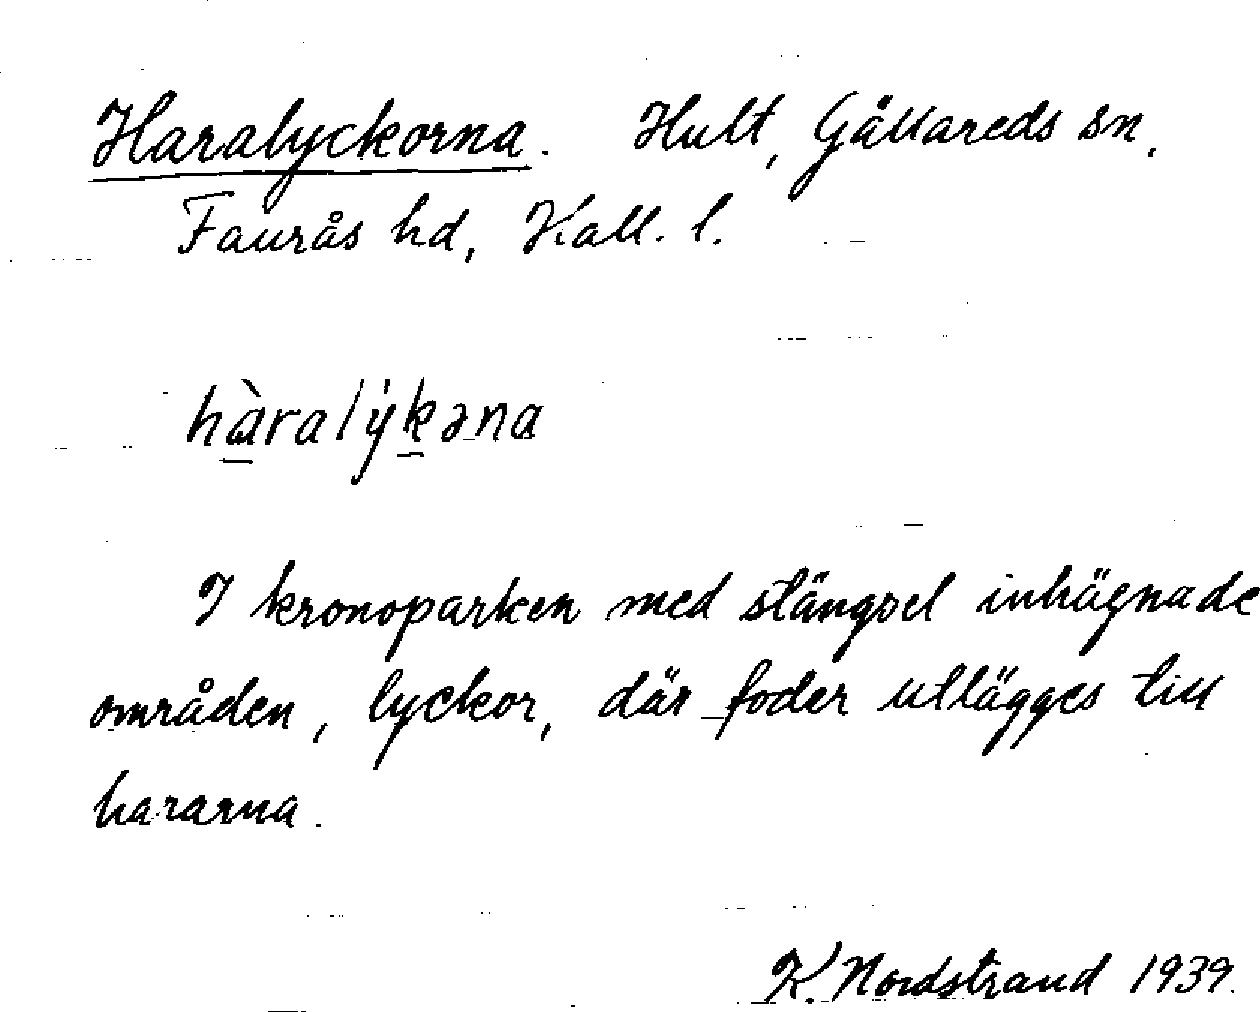 Haralyckorna. Hult, Gällareds sn,
Faurås hd, Hall. l.
hàralýkəna
I kronoparken med stängsel inhägnade
områden, lyckor, där foder utlägges till
hararna.
K. Nordstrand 1939.